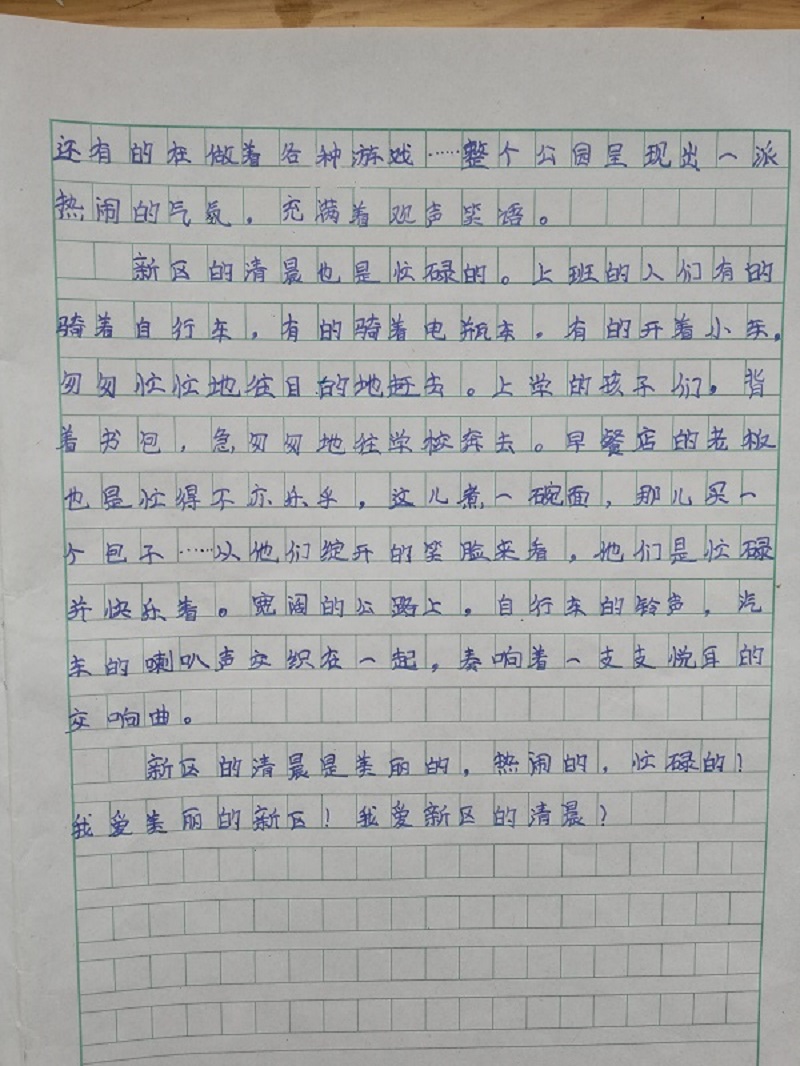 还有的在做着各种游戏……整个公园呈现出一派
热闹的气氛，充满着观声笑语。
新区的清晨也是忙碌的。上班的人们有的
骑着自行车，有的骑着电瓶车，有的开着小车，
匆匆忙忙地往目的地赶去。上学的孩子们，背
着书包，急匆匆地往学校奔去。早餐店的老板
也是忙得不亦乐乎，这儿煮一碗面，那儿买一
个包子……从他们绽开的笑脸来看，他们是忙碌
并快乐着。宽阔的公路上，自行车的铃声，汽
车的喇叭声交织在一起，奏响着一支支悦耳的
交响曲。
新区的清晨是美丽的，热闹的，忙碌的！
我爱美丽的新区！我爱新区的清晨？